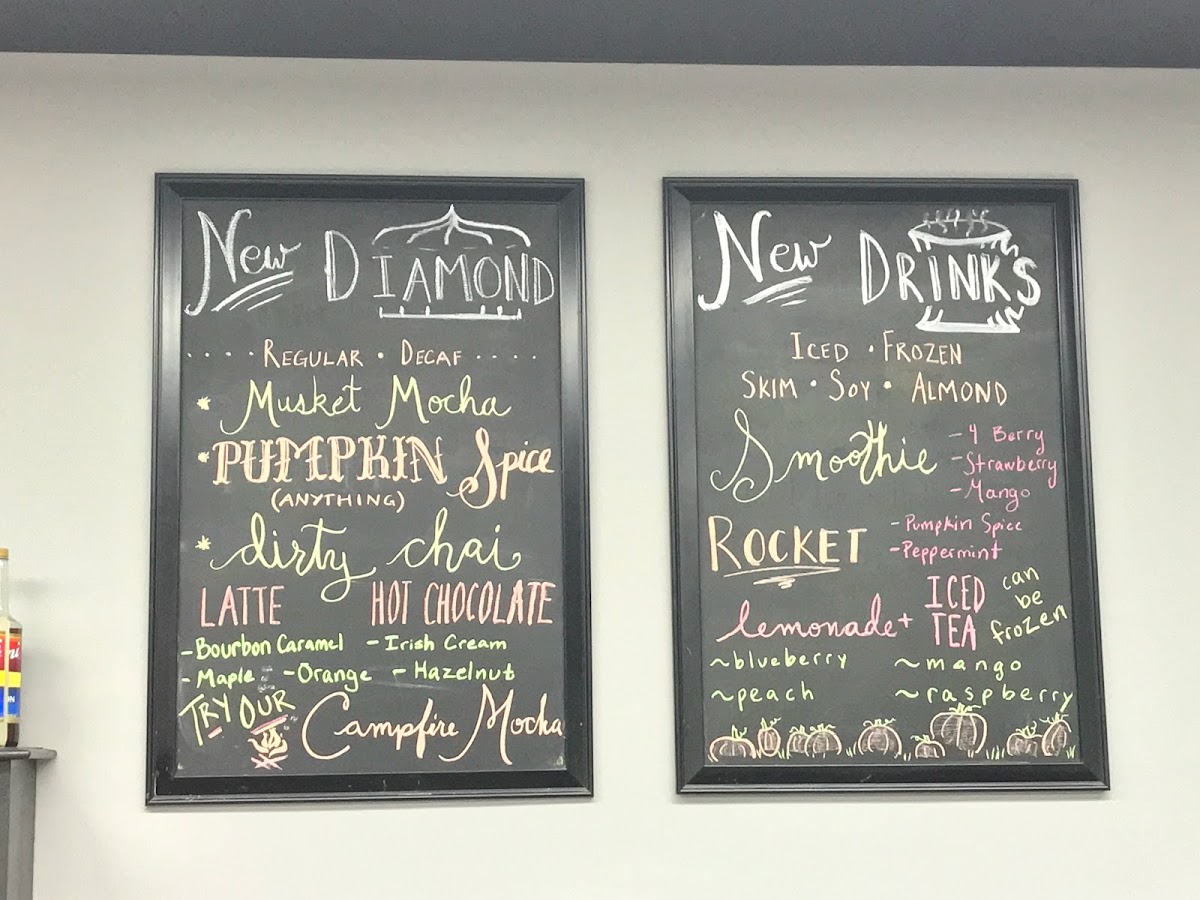 New DIAMOND
REGULAR • DECAF
Musket Mocha
PUMPKIN Spice
(ANYTHING)
dirty chai
LATTE HOT CHOCOLATE
- Bourbon Caramel - Irish Cream
- Maple - Orange - Hazelnut
TRY OUR
Campfire Mocha
New DRINKS
ICED • FROZEN
SKIM • SOY • ALMOND
Smoothie
- 4 Berry
- Strawberry
- Mango
ROCKET
- Pumpkin Spice
- Peppermint
lemonade + ICED TEA
can
be
frozen
~blueberry ~mango
~peach ~raspberry